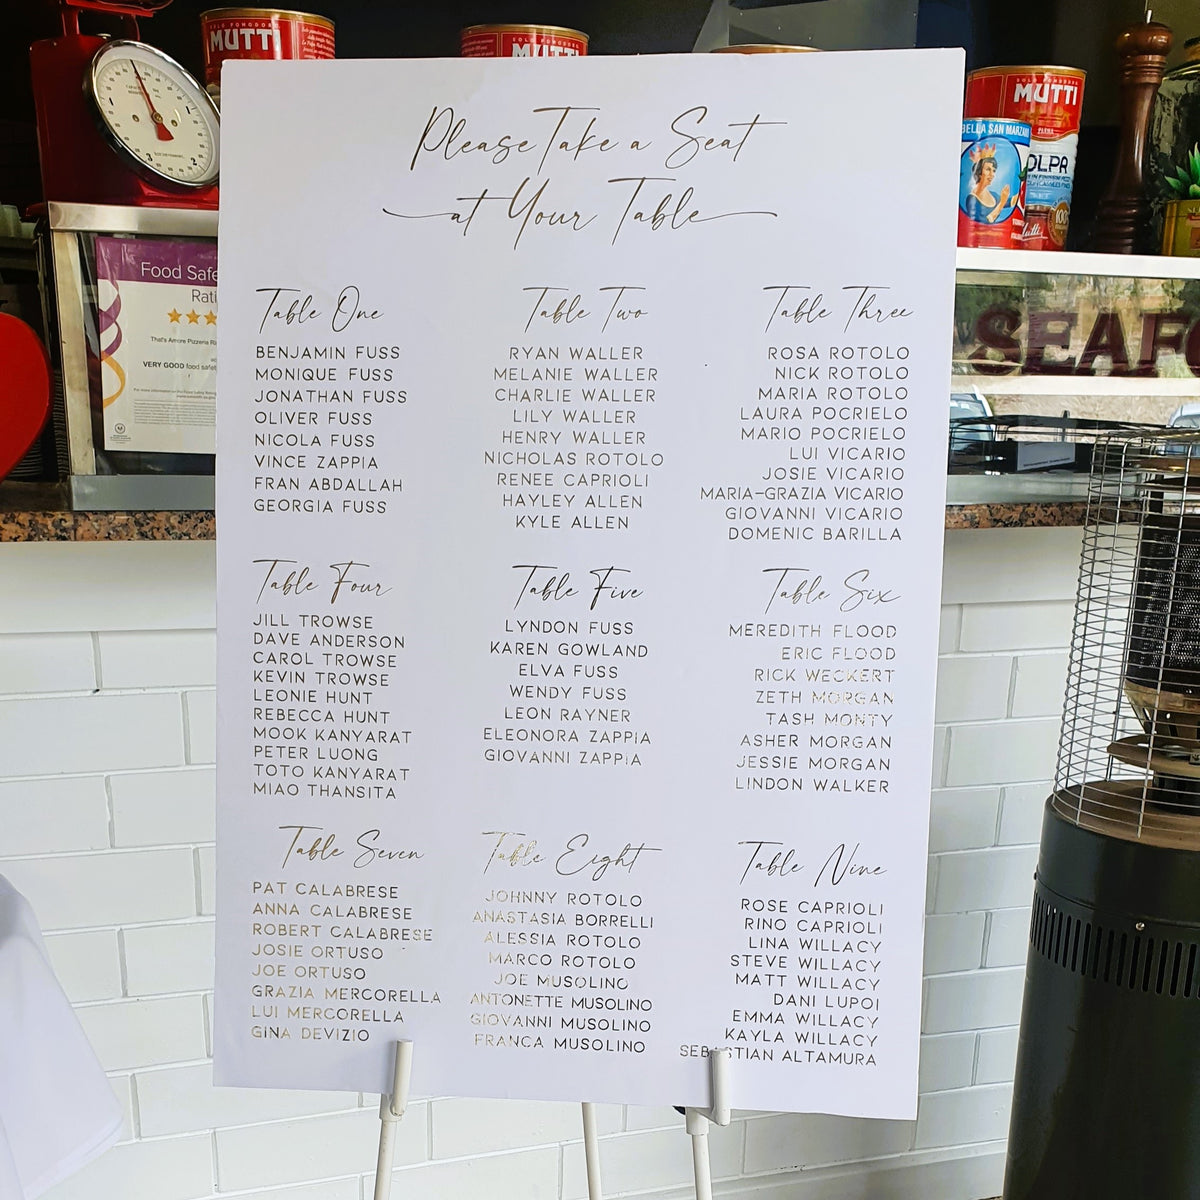 SOLO POMODORO
MUTTI
SOLO POMODORO
MUTTI
SOLO POMODORO
MUTTI
PARMA
BELLA SAN MARZANO
OLPA
Mutti
Food Safe
Rati
That's Amore Pizzeria
VERY GOOD food safet
SEAFO
Please Take a Seat
at Your Table
Table One
BENJAMIN FUSS
MONIQUE FUSS
JONATHAN FUSS
OLIVER FUSS
NICOLA FUSS
VINCE ZAPPIA
FRAN ABDALLAH
GEORGIA FUSS
Table Two
RYAN WALLER
MELANIE WALLER
CHARLIE WALLER
LILY WALLER
HENRY WALLER
NICHOLAS ROTOLO
RENEE CAPRIOLI
HAYLEY ALLEN
KYLE ALLEN
Table Three
ROSA ROTOLO
NICK ROTOLO
MARIA ROTOLO
LAURA POCRIELO
MARIO POCRIELO
LUI VICARIO
JOSIE VICARIO
MARIA-GRAZIA VICARIO
GIOVANNI VICARIO
DOMENIC BARILLA
Table Four
JILL TROWSE
DAVE ANDERSON
CAROL TROWSE
KEVIN TROWSE
LEONIE HUNT
REBECCA HUNT
MOOK KANYARAT
PETER LUONG
TOTO KANYARAT
MIAO THANSITA
Table Five
LYNDON FUSS
KAREN GOWLAND
ELVA FUSS
WENDY FUSS
LEON RAYNER
ELEONORA ZAPPIA
GIOVANNI ZAPPIA
Table Six
MEREDITH FLOOD
ERIC FLOOD
RICK WECKERT
ZETH MORGAN
TASH MONTY
ASHER MORGAN
JESSIE MORGAN
LINDON WALKER
Table Seven
PAT CALABRESE
ANNA CALABRESE
ROBERT CALABRESE
JOSIE ORTUSO
JOE ORTUSO
GRAZIA MERCORELLA
LUI MERCORELLA
GINA DEVIZIO
Table Eight
JOHNNY ROTOLO
ANASTASIA BORRELLI
ALESSIA ROTOLO
MARCO ROTOLO
JOE MUSOLINO
ANTONETTE MUSOLINO
GIOVANNI MUSOLINO
FRANCA MUSOLINO
Table Nine
ROSE CAPRIOLI
RINO CAPRIOLI
LINA WILLACY
STEVE WILLACY
MATT WILLACY
DANI LUPOI
EMMA WILLACY
KAYLA WILLACY
SEBASTIAN ALTAMURA